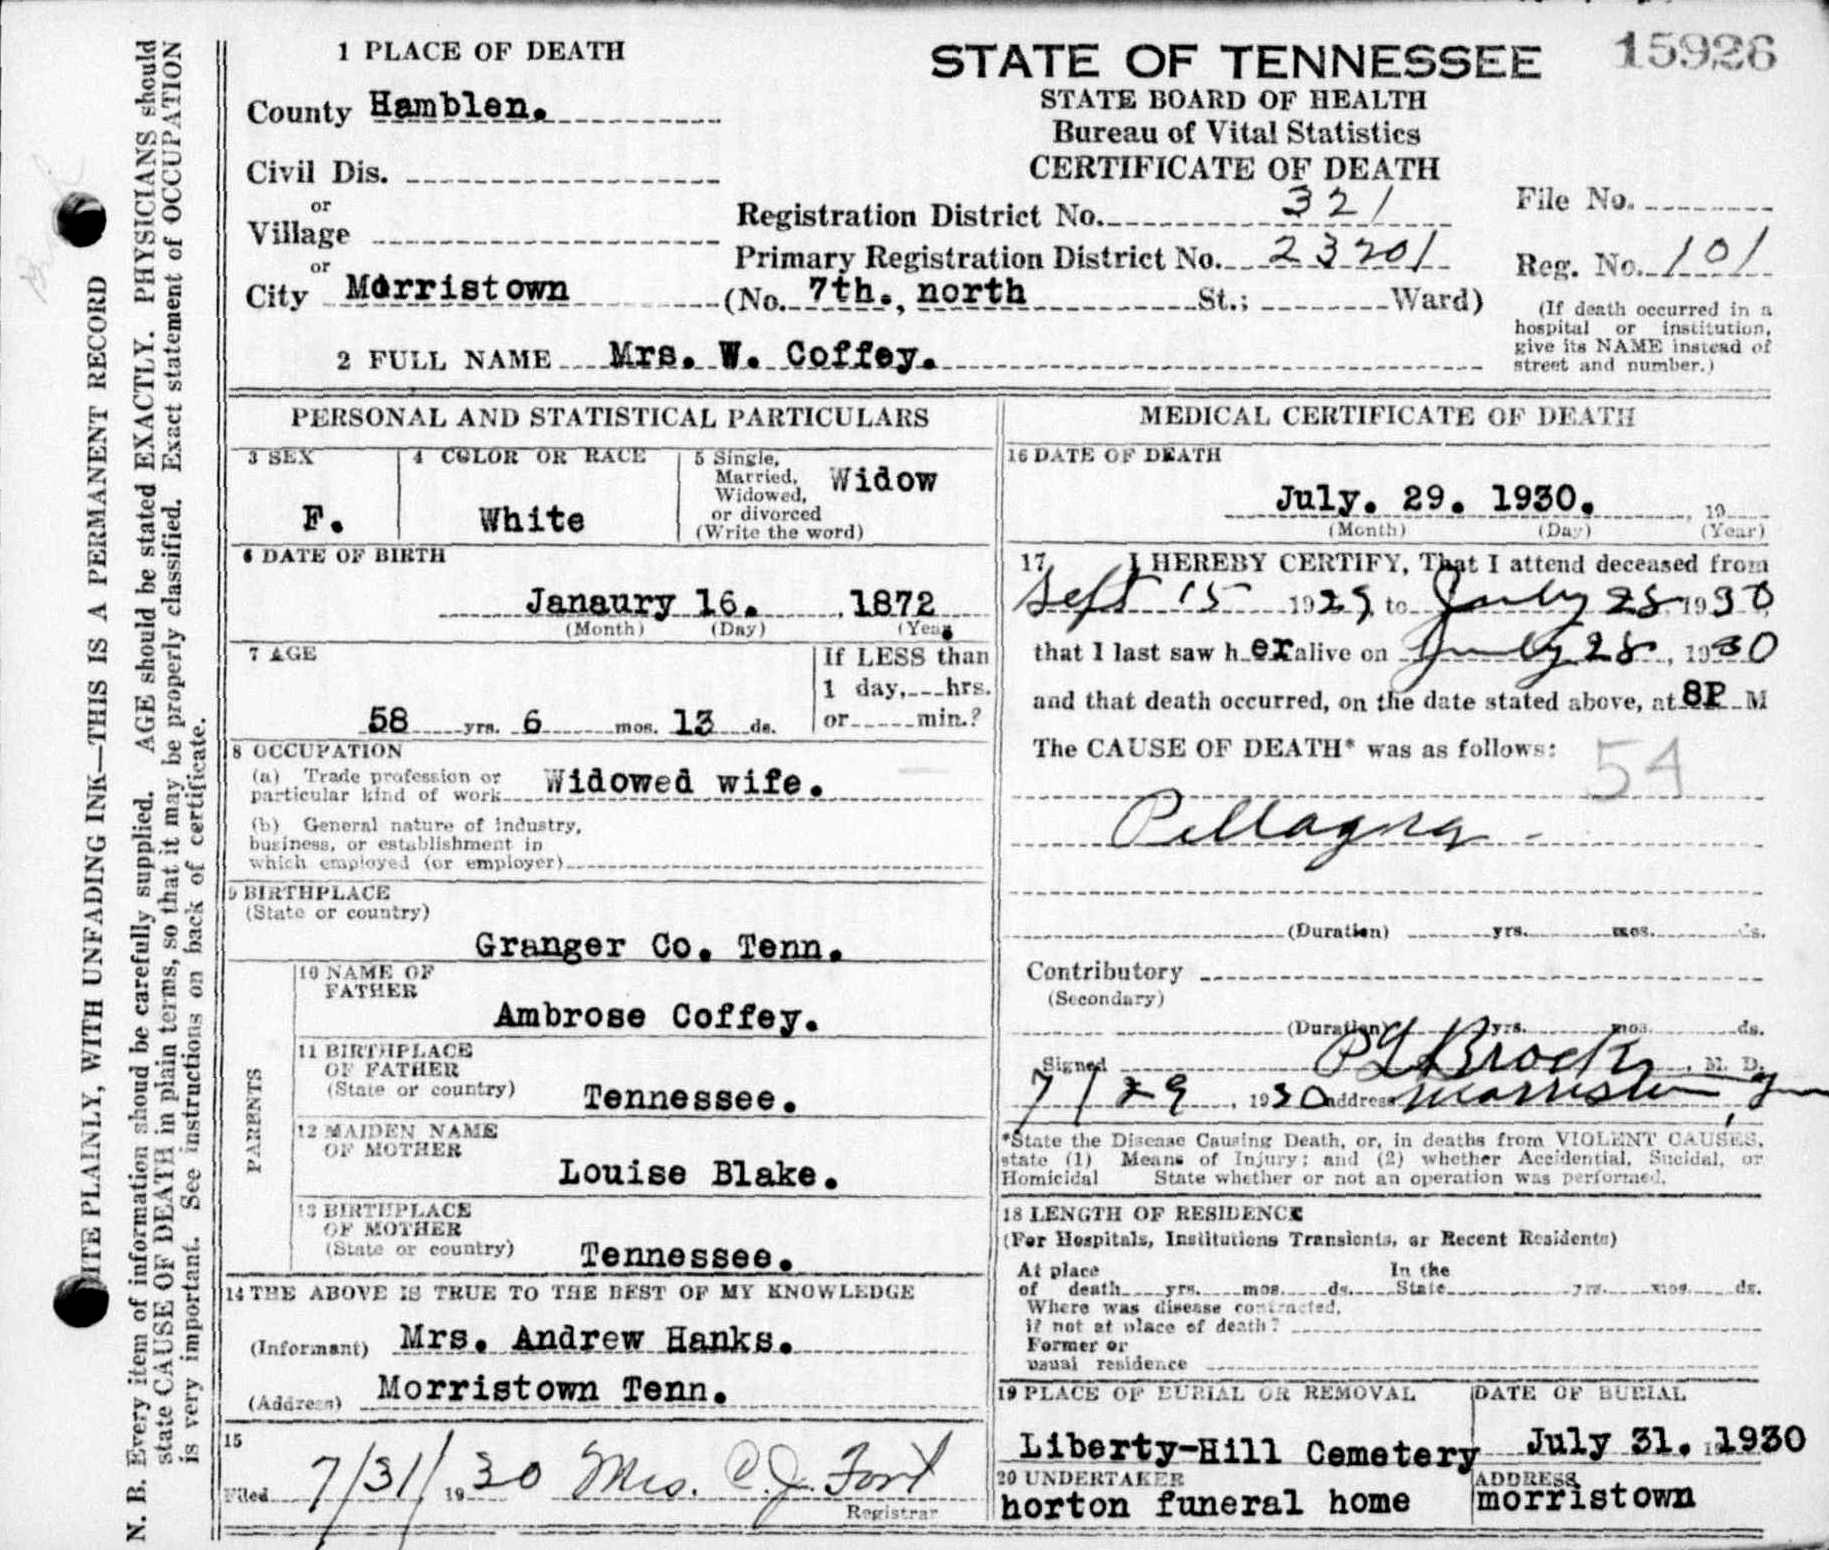 15926
1 PLACE OF DEATH
County Hamblen.
Civil Dis.
or
Village
or
City Morristown
STATE OF TENNESSEE
STATE BOARD OF HEALTH
Bureau of Vital Statistics
CERTIFICATE OF DEATH
Registration District No. 321
Primary Registration District No. 23201
(No. 7th., north St.; Ward)
File No.
Reg. No. 101
(If death occurred in a
hospital or institution,
give its NAME instead of
street and number.)
2 FULL NAME Mrs. W. Coffey.
PERSONAL AND STATISTICAL PARTICULARS
3 SEX
F.
4 COLOR OR RACE
White
5 Single,
Married,
Widowed,
or divorced
(Write the word)
Widow
6 DATE OF BIRTH
Janaury 16. , 1872
(Month) (Day) (Year
7 AGE
58 yrs. 6 mos. 13 ds.
If LESS than
1 day, hrs.
or min.?
8 OCCUPATION
(a) Trade profession or
particular kind of work Widowed wife.
(b) General nature of industry,
business, or establishment in
which employed (or employer)
9 BIRTHPLACE
(State or country)
Granger Co. Tenn.
PARENTS
10 NAME OF
FATHER
Ambrose Coffey.
11 BIRTHPLACE
OF FATHER
(State or country)
Tennessee.
12 MAIDEN NAME
OF MOTHER
Louise Blake.
13 BIRTHPLACE
OF MOTHER
(State or country)
Tennessee.
14 THE ABOVE IS TRUE TO THE BEST OF MY KNOWLEDGE
(Informant) Mrs. Andrew Hanks.
(Address) Morristown Tenn.
15
Filed 7/31/ 1930 Mrs. C. J. Fort
Registrar
MEDICAL CERTIFICATE OF DEATH
16 DATE OF DEATH
July. 29. 1930. , 19
(Month) (Day) (Year)
17 I HEREBY CERTIFY, That I attend deceased from
Sept 15 1929, to July 28 1930,
that I last saw h er alive on July 28, 1930
and that death occurred, on the date stated above, at 8P M
The CAUSE OF DEATH* was as follows:
54
Pellagra -
(Duration) yrs. mos. ds.
Contributory
(Secondary)
(Duration) yrs. mos. ds.
Signed P L Brock, M. D.
7/29, 1930 address Morristown, Tenn
*State the Disease Causing Death, or, in deaths from VIOLENT CAUSES,
state (1) Means of Injury; and (2) whether Accidential, Sucidal, or
Homicidal State whether or not an operation was performed.
18 LENGTH OF RESIDENCE
(For Hospitals, Institutions Transients, or Recent Residents)
At place In the
of death yrs. mos. ds. State yrs. mos. ds.
Where was disease contracted,
if not at place of death?
Former or
usual residence
19 PLACE OF BURIAL OR REMOVAL
Liberty-Hill Cemetery
DATE OF BURIAL
July 31. 1930
20 UNDERTAKER
horton funeral home
ADDRESS
morristown
N. B. Every item of information shoud be carefully supplied. AGE should be stated EXACTLY. PHYSICIANS should
state CAUSE OF DEATH in plain terms, so that it may be properly classified. Exact statement of OCCUPATION
is very important. See instructions on back of certificate.
ITE PLAINLY, WITH UNFADING INK—THIS IS A PERMANENT RECORD